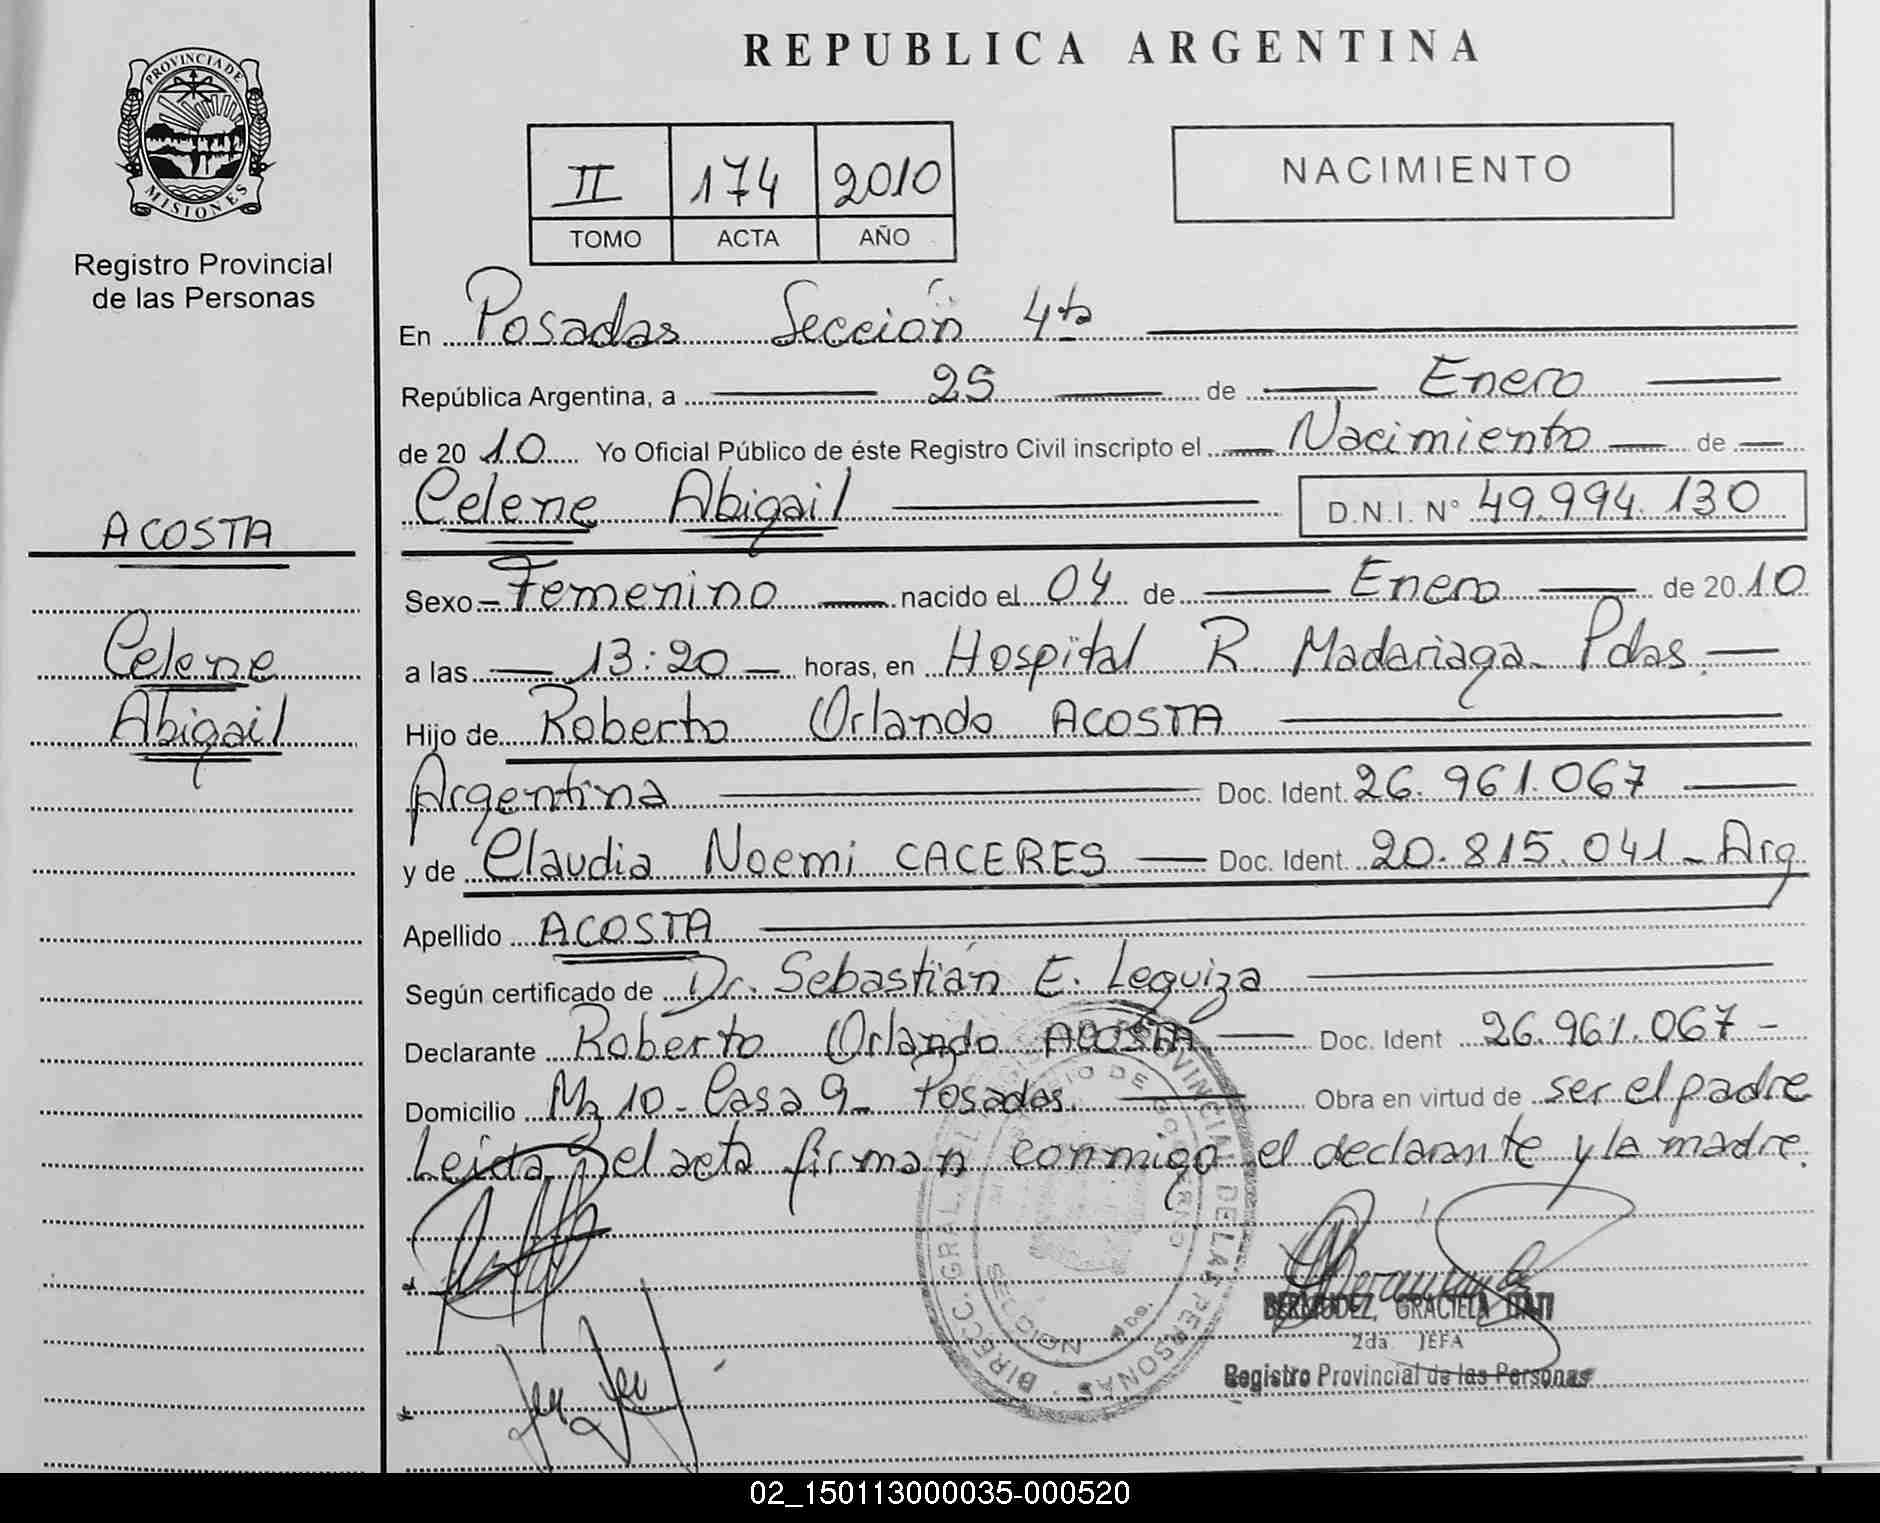 PROVINCIA DE
MISIONES
Registro Provincial
de las Personas
ACOSTA
Celene
Abigail
REPUBLICA ARGENTINA
II 174 2010
TOMO ACTA AÑO
NACIMIENTO
En Posadas Sección 4ta
República Argentina, a 25 de Enero
de 2010 Yo Oficial Público de éste Registro Civil inscripto el Nacimiento de
Celene Abigail D.N.I. N° 49.994.130
Sexo Femenino nacido el 04 de Enero de 2010
a las 13:20 horas, en Hospital R. Madariaga Pdas.
Hijo de Roberto Orlando ACOSTA
Argentina Doc. Ident. 26.961.067
y de Claudia Noemi CACERES Doc. Ident. 20.815.041 - Arg
Apellido ACOSTA
Según certificado de Dr. Sebastián E. Leguiza
Declarante Roberto Orlando ACOSTA Doc. Ident 26.961.067 -
Domicilio Mz 10 - Casa 9 - Posadas. Obra en virtud de ser el padre
Leida el acta firman conmigo el declarante y la madre.
DIRECC. GRAL. DEL REGISTRO PROVINCIAL DE LAS PERSONAS
MINISTERIO DE GOBIERNO
BERMUDEZ, GRACIELA ITATI
2da JEFA
Registro Provincial de las Personas
02_150113000035-000520